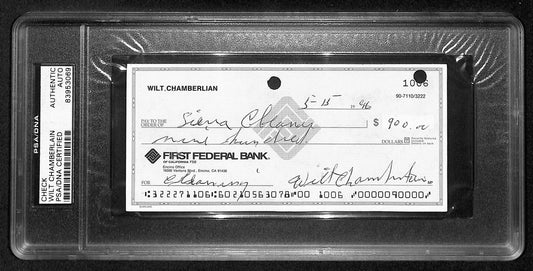 PSA/DNA
CHECK
WILT CHAMBERLAIN
PSA/DNA CERTIFIED
AUTHENTIC
AUTO
83953069
WILT.CHAMBERLIAN
1006
90-7110/3222
5-15 19 96
PAY TO THE
ORDER OF
Sierra Cleaning
$ 900.00
nine hundred
DOLLARS
FIRST FEDERAL BANK
OF CALIFORNIA FSB
Encino Office
16355 Ventura Blvd., Encino, CA 91436
FOR Cleaning
Wilt Chamberlain MP
322271106 60210563078 00 1006 0000090000